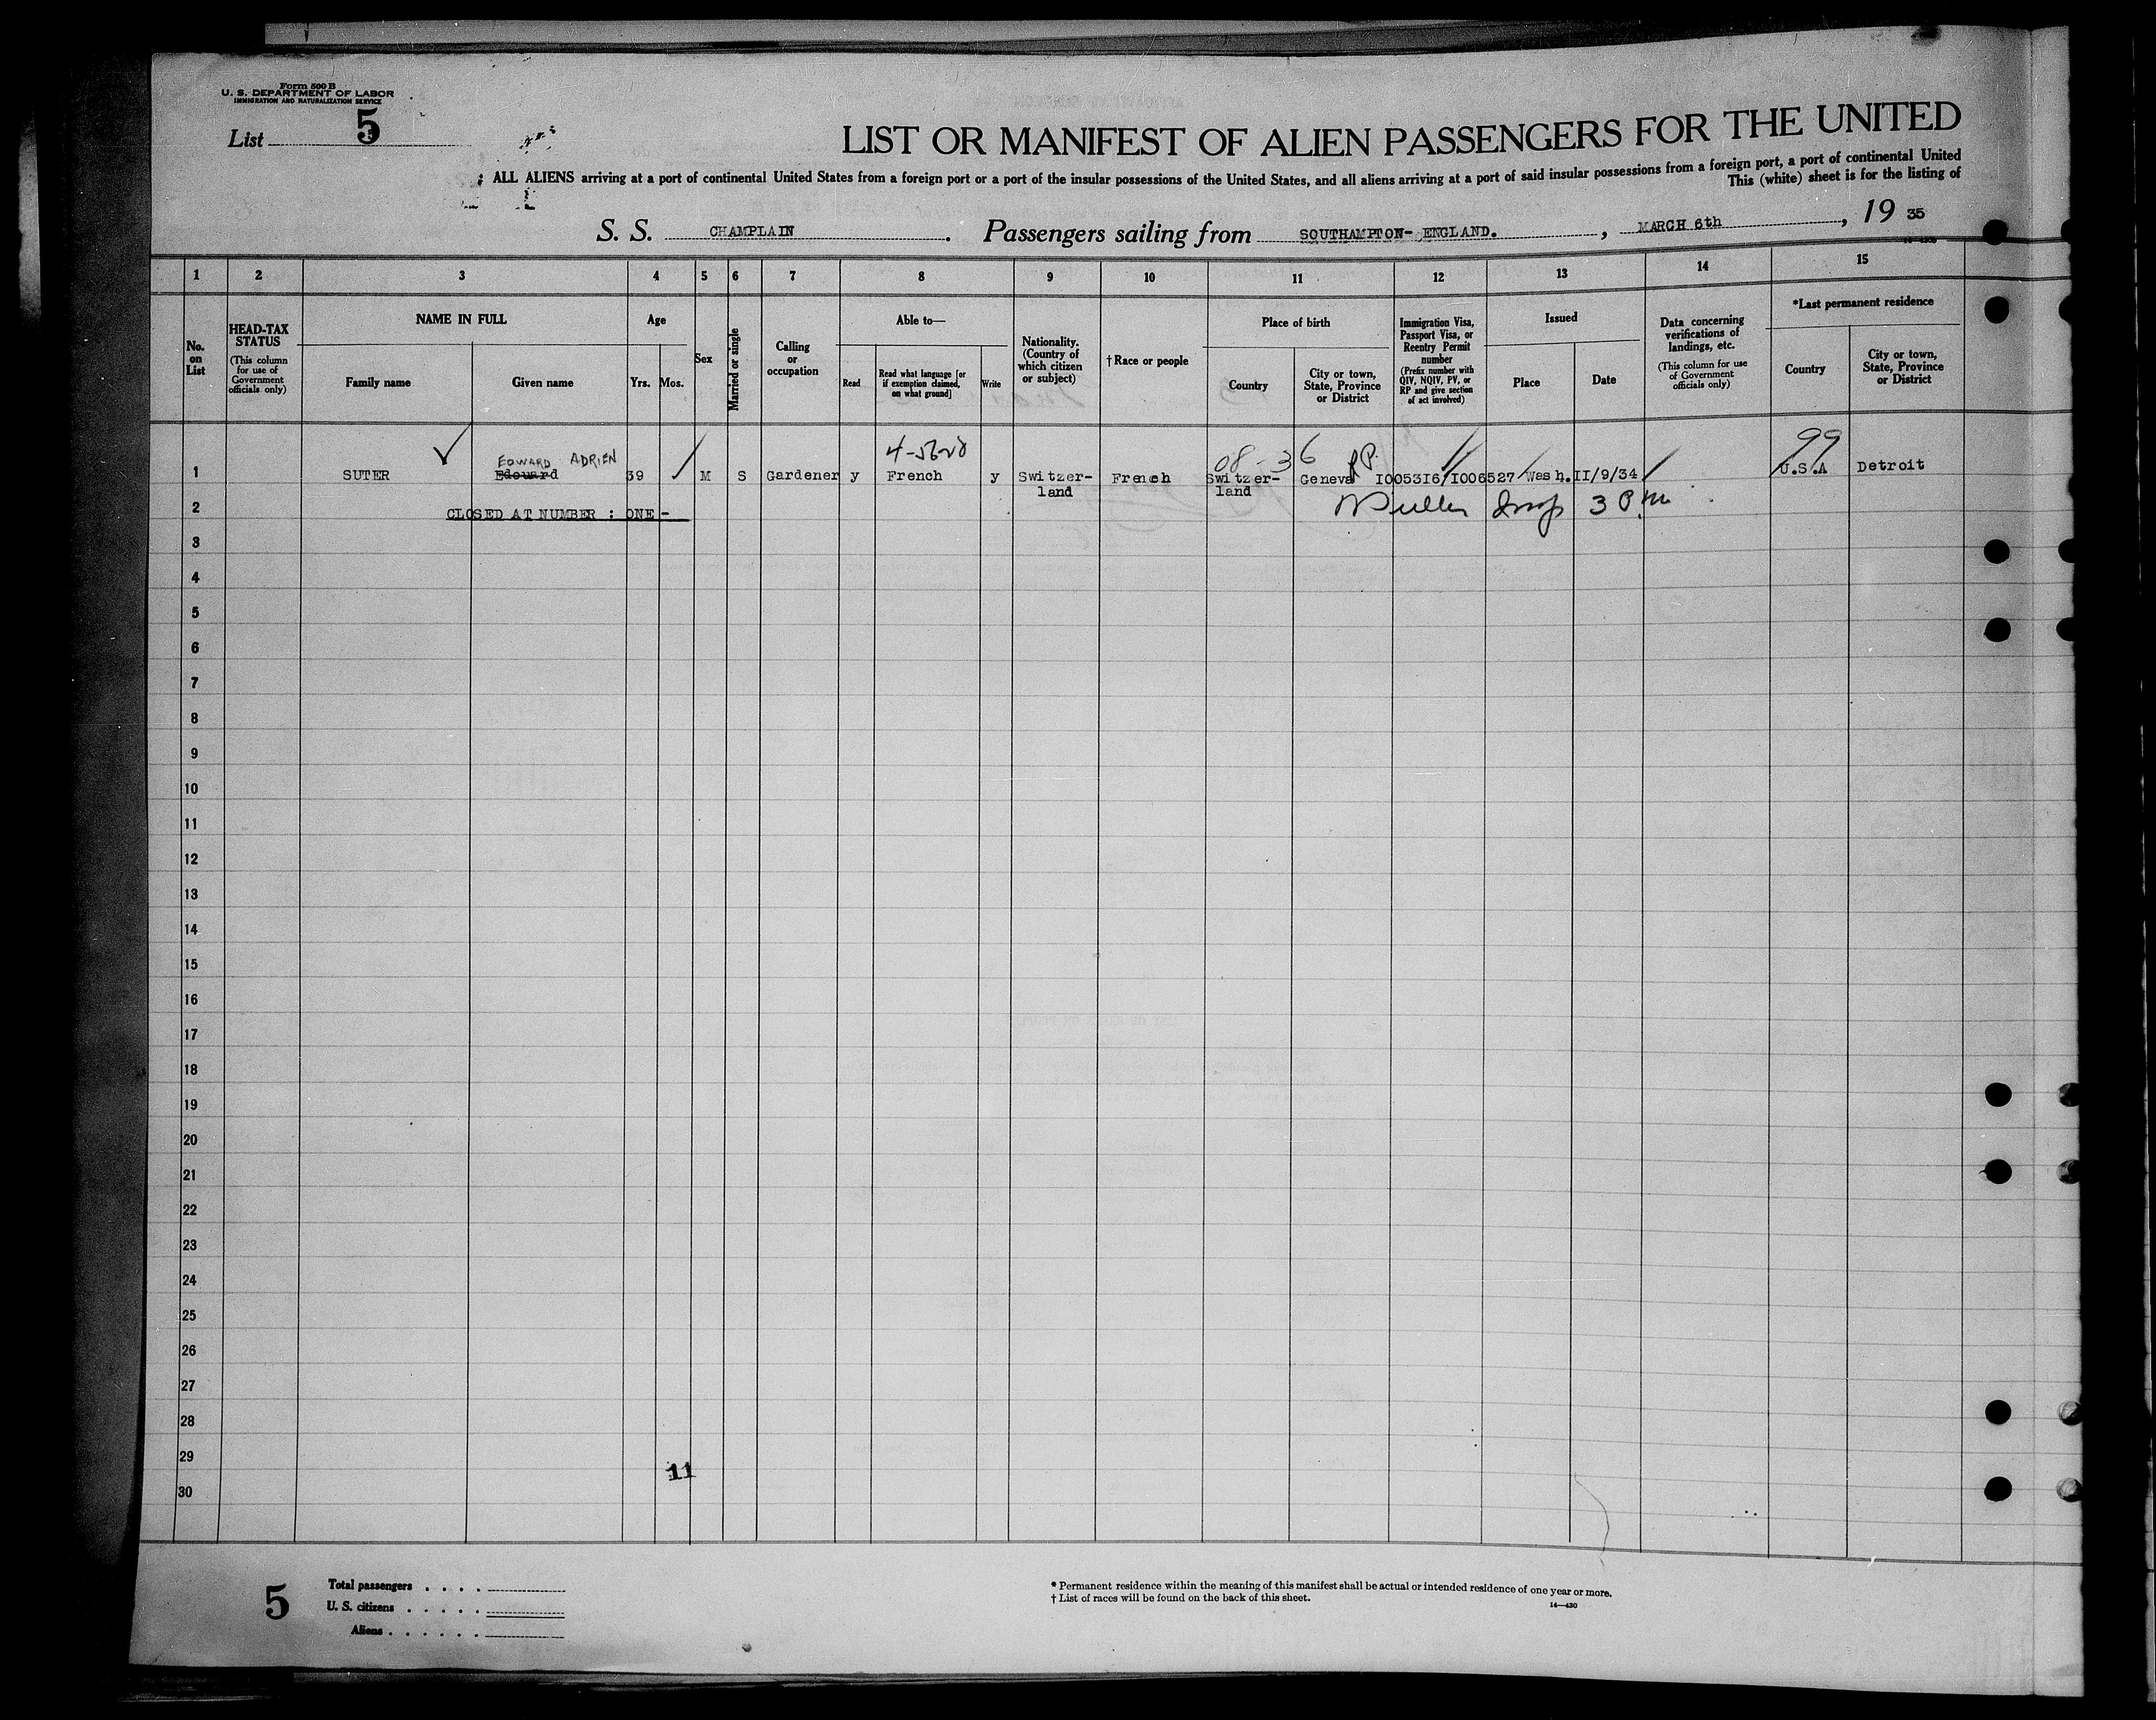 Form 500 B
U. S. DEPARTMENT OF LABOR
IMMIGRATION AND NATURALIZATION SERVICE
List 5
LIST OR MANIFEST OF ALIEN PASSENGERS FOR THE UNITED
ALL ALIENS arriving at a port of continental United States from a foreign port or a port of the insular possessions of the United States, and all aliens arriving at a port of said insular possessions from a foreign port, a port of continental United
This (white) sheet is for the listing of
S. S. CHAMPLAIN. Passengers sailing from SOUTHAMPTON- ENGLAND., MARCH 6th, 19 35
1 2 3 4 5 6 7 8 9 10 11 12 13 14 15
No. on List
HEAD-TAX STATUS
(This column for use of Government officials only)
NAME IN FULL
Family name
Given name
Age
Yrs.
Mos.
Sex
Married or single
Calling or occupation
Able to—
Read
Read what language [or if exemption claimed, on what ground]
Write
Nationality. (Country of which citizen or subject)
†Race or people
Place of birth
Country
City or town, State, Province or District
Immigration Visa, Passport Visa, or Reentry Permit number
(Prefix number with QIV, NQIV, PV, or RP and give section of act involved)
Issued
Place
Date
Data concerning verifications of landings, etc.
(This column for use of Government officials only)
*Last permanent residence
Country
City or town, State, Province or District
08-36 RP. 99
EDWARD ADRIEN
1 SUTER Edouard 39 M S Gardener y French y Switzer- French Switzer- Geneva I005316/I006527 Wash. II/9/34 U.S.A Detroit
land land
2 CLOSED AT NUMBER : ONE - 3 P.m
3
4
5
6
7
8
9
10
11
12
13
14
15
16
17
18
19
20
21
22
23
24
25
26
27
28
29
11
30
5
Total passengers . . . .
U. S. citizens . . . . .
Aliens . . . . . .
* Permanent residence within the meaning of this manifest shall be actual or intended residence of one year or more.
† List of races will be found on the back of this sheet.
14—430